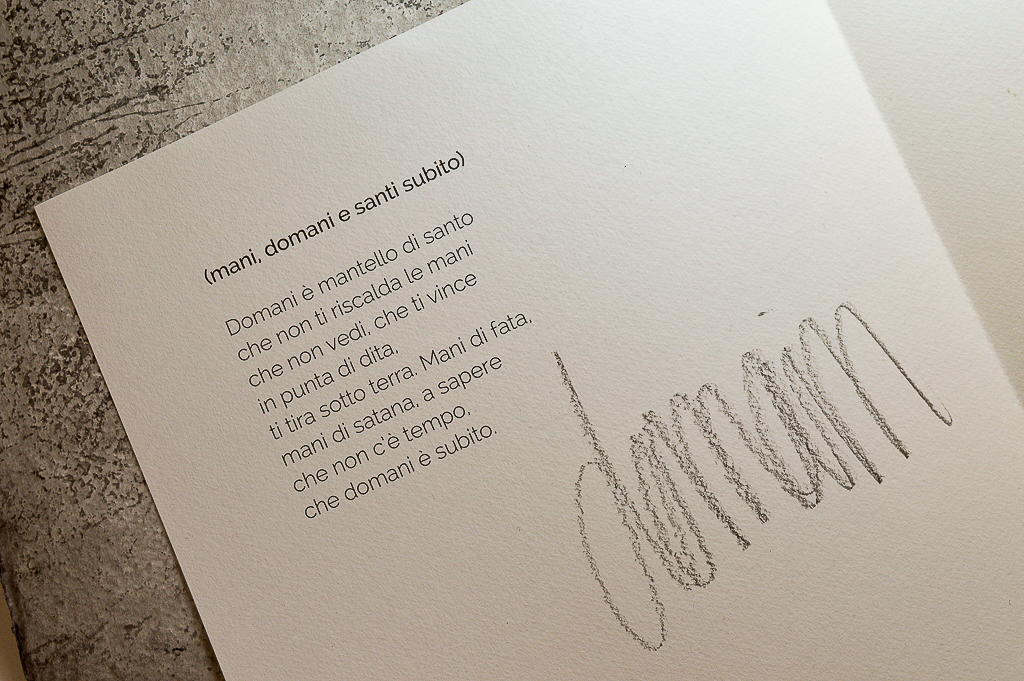 (mani, domani e santi subito)
Domani è mantello di santo
che non ti riscalda le mani
che non vedi, che ti vince
in punta di dita,
ti tira sotto terra. Mani di fata,
mani di satana, a sapere
che non c'è tempo,
che domani è subito.
domani